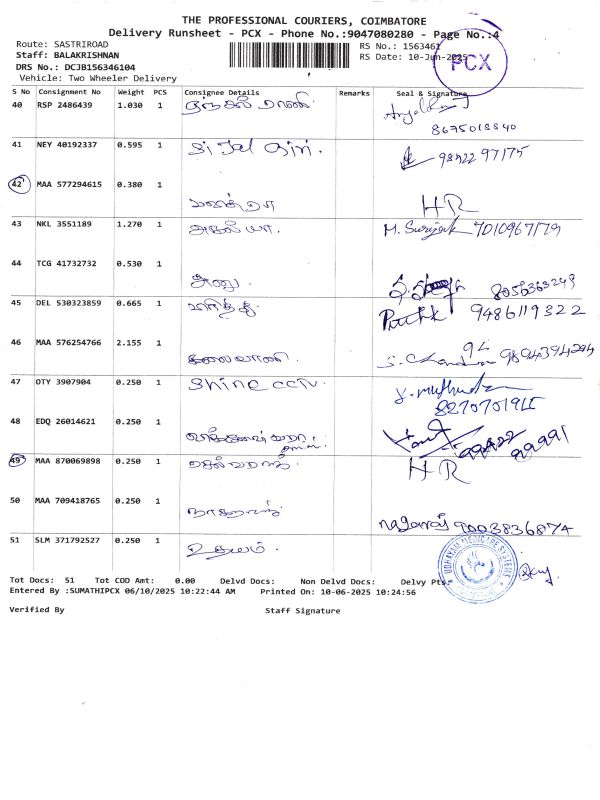 THE PROFESSIONAL COURIERS, COIMBATORE
Delivery Runsheet - PCX - Phone No.:9047080280 - Page No.:4
Route: SASTRIROAD
RS No.: 1563461
Staff: BALAKRISHNAN
RS Date: 10-Jun-2025
PCX
DRS No.: DCJB156346104
Vehicle: Two Wheeler Delivery
S No Consignment No Weight PCS Consignee Details Remarks Seal & Signature
40 RSP 2486439 1.030 1
8675018840
41 NEY 40192337 0.595 1 Sri Jai Giri.
98422 97175
42 MAA 577294615 0.380 1
HR
43 NKL 3551189 1.270 1 அகல்யா.
M. 7010967179
44 TCG 41732732 0.530 1 அனு
8056363249
45 DEL 530323859 0.665 1
9486119322
46 MAA 576254766 2.155 1 கலைவாணி.
9894394294
47 OTY 3907904 0.250 1 Shine cctv.
48 EDQ 26014621 0.250 1
99422 99991
49 MAA 870069898 0.250 1 செல்வராஜ்
HR
50 MAA 709418765 0.250 1 நாகராஜ்
nagaraj 9003836874
51 SLM 371792527 0.250 1 உதயம்.
UDHAYAM MEDICARE SYSTEMS
Tot Docs: 51 Tot COD Amt: 0.00 Delvd Docs: Non Delvd Docs: Delvy Pts:
Entered By :SUMATHIPCX 06/10/2025 10:22:44 AM Printed On: 10-06-2025 10:24:56
Verified By Staff Signature